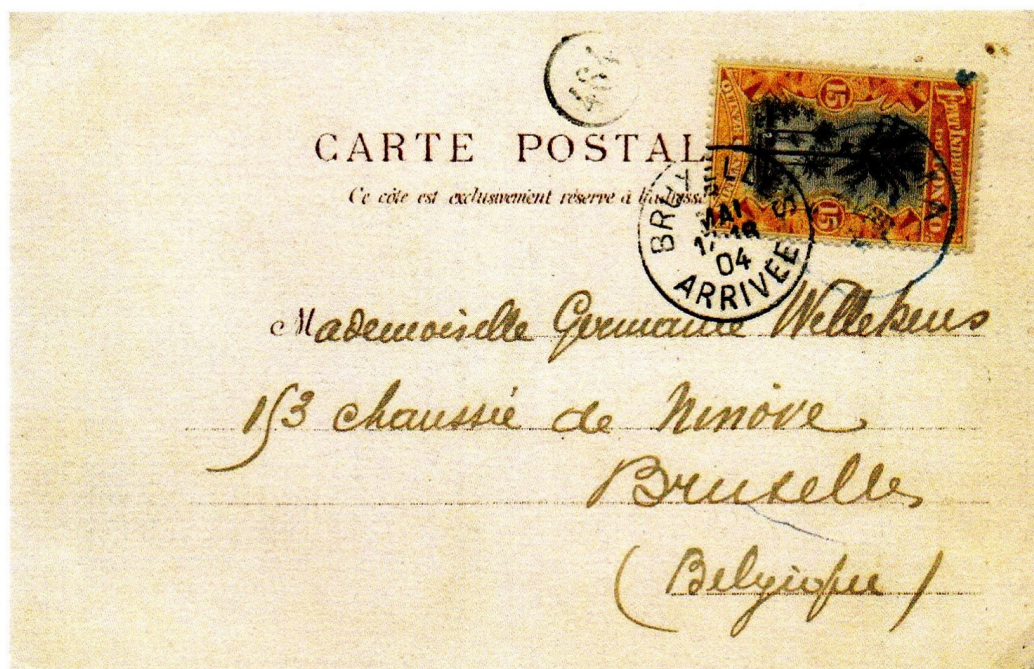 461
CARTE POSTAL
Ce côté est exclusivement réservé à
15
15
BRUXELLES
MAI
04
ARRIVÉE
Mademoiselle Germaine Willekens
153 chaussée de Ninove
Bruxelles
(Belgique)